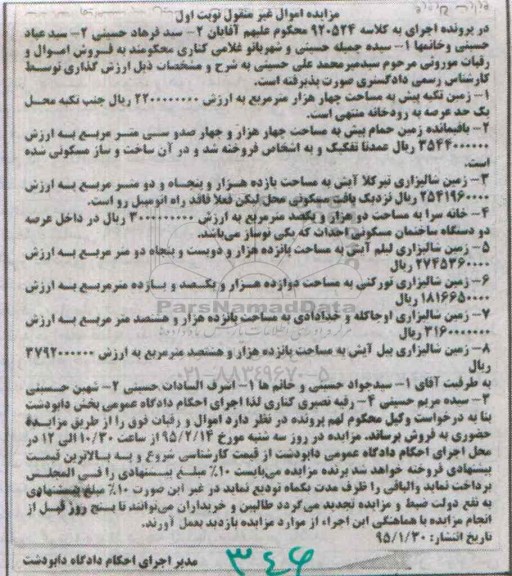 مزایده اموال غیر منقول نوبت اول
در پرونده اجرای به کلاسه ۹۲۰۵۲۴ محکوم علیهم آقایان ۲- سید فرهاد حسینی ۲- سید عباد
حسینی وخانمها ۱- سیده جمیله حسینی و شهربانو غلامی کناری محکومند به فروش اموال و
رقبات موروثی مرحوم سیدمیرمحمد علی حسینی به شرح و مشخصات ذیل ارزش گذاری توسط
کارشناس رسمی دادگستری صورت پذیرفته است.
۱- زمین تکیه پیش به مساحت چهار هزار مترمربع به ارزش ۲۲۰۰۰۰۰۰۰۰ ریال جنب تکیه محل
یک حد عرصه به رودخانه منتهی است.
۲- باقیمانده زمین حمام پیش به مساحت چهار هزار و چهار صدو سی متر مربع به ارزش
۳۵۴۴۰۰۰۰۰۰ ریال عمدتا تفکیک و به اشخاص فروخته شد و در آن ساخت و ساز مسکونی شده
است.
۳- زمین شالیزاری تیرکلا آیش به مساحت یازده هزار و پنجاه و دو متر مربع به ارزش
۲۵۴۱۹۶۰۰۰۰ ریال نزدیک بافت مسکونی محل لیکن فعلا فاقد راه اتومبیل رو است.
۴- خانه سرا به مساحت دو هزار و یکصد مترمربع به ارزش ۳۰۰۰۰۰۰۰۰۰ ریال در داخل عرصه
دو دستگاه ساختمان مسکونی احداث که یکی نوساز می‌باشد.
۵- زمین شالیزاری لیلم آیش به مساحت پانزده هزار و دویست و پنجاه دو متر مربع به ارزش
۲۷۴۵۳۶۰۰۰۰ ریال
۶- زمین شالیزاری تورکنی به مساحت دوازده هزار و یکصد و یازده مترمربع به ارزش
۱۸۱۶۶۵۰۰۰۰ ریال
۷- زمین شالیزاری اوجاکله و خدادادی به مساحت پانزده هزار و هشتصد متر مربع به ارزش
۳۱۶۰۰۰۰۰۰۰ ریال
۸- زمین شالیزاری بیل آیش به مساحت پانزده هزار و هشتصد مترمربع به ارزش ۳۷۹۲۰۰۰۰۰۰
ریال
به طرفیت آقای ۱- سیدجواد حسینی و خانم ها ۱- اشرف السادات حسینی ۲- شهین حسینی
۳- سیده مریم حسینی ۴- رقیه نصیری کناری لذا اجرای احکام دادگاه عمومی بخش دابودشت
بنا به درخواست وکیل محکوم لهم پرونده در نظر دارد اموال و رقبات فوق را از طریق مزایده
حضوری به فروش برساند. مزایده در روز سه شنبه مورخ ۹۵/۲/۱۴ از ساعت ۱۰/۳۰ الی ۱۲ در
محل اجرای احکام دادگاه عمومی دابودشت از قیمت کارشناسی شروع و به بالاترین قیمت
پیشنهادی فروخته خواهد شد برنده مزایده می‌بایست ۱۰٪ مبلغ پیشنهادی را فی المجلس
پرداخت نماید والباقی را ظرف مدت یکماه تودیع نماید در غیر این صورت ۱۰٪ مبلغ پیشنهادی
به نفع دولت ضبط و مزایده تجدید می‌گردد طالبین و خریداران می‌توانند تا پنج روز قبل از
انجام مزایده با هماهنگی این اجراء از موارد مزایده بازدید بعمل آورند.
تاریخ انتشار: ۹۵/۱/۳۰
مدیر اجرای احکام دادگاه دابودشت
۳۴۶
ParsNamadData
۰۲۱-۸۸۳۴۹۶۷۰-۵